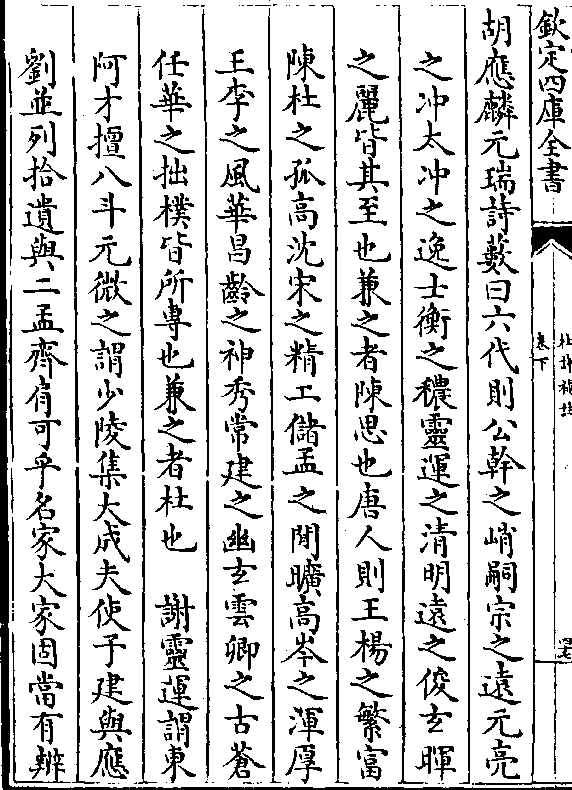 欽定四庫全書
卷下
胡應麟元瑞詩藪曰六代則公幹之峭嗣宗之遠元亮
之沖太冲之逸士衡之穠靈運之清明遠之俊玄暉
之麗皆其至也兼之者陳思也唐人則王楊之繁富
陳杜之孤高沈宋之精工儲孟之閒曠高岑之渾厚
王李之風華昌齡之神秀常建之幽玄雲卿之古蒼
任華之拙樸皆所專也兼之者杜也　謝靈運謂東
阿才擅八斗元微之謂少陵集大成夫使子建與應
劉並列拾遺與二孟齊肩可乎名家大家固當有辨